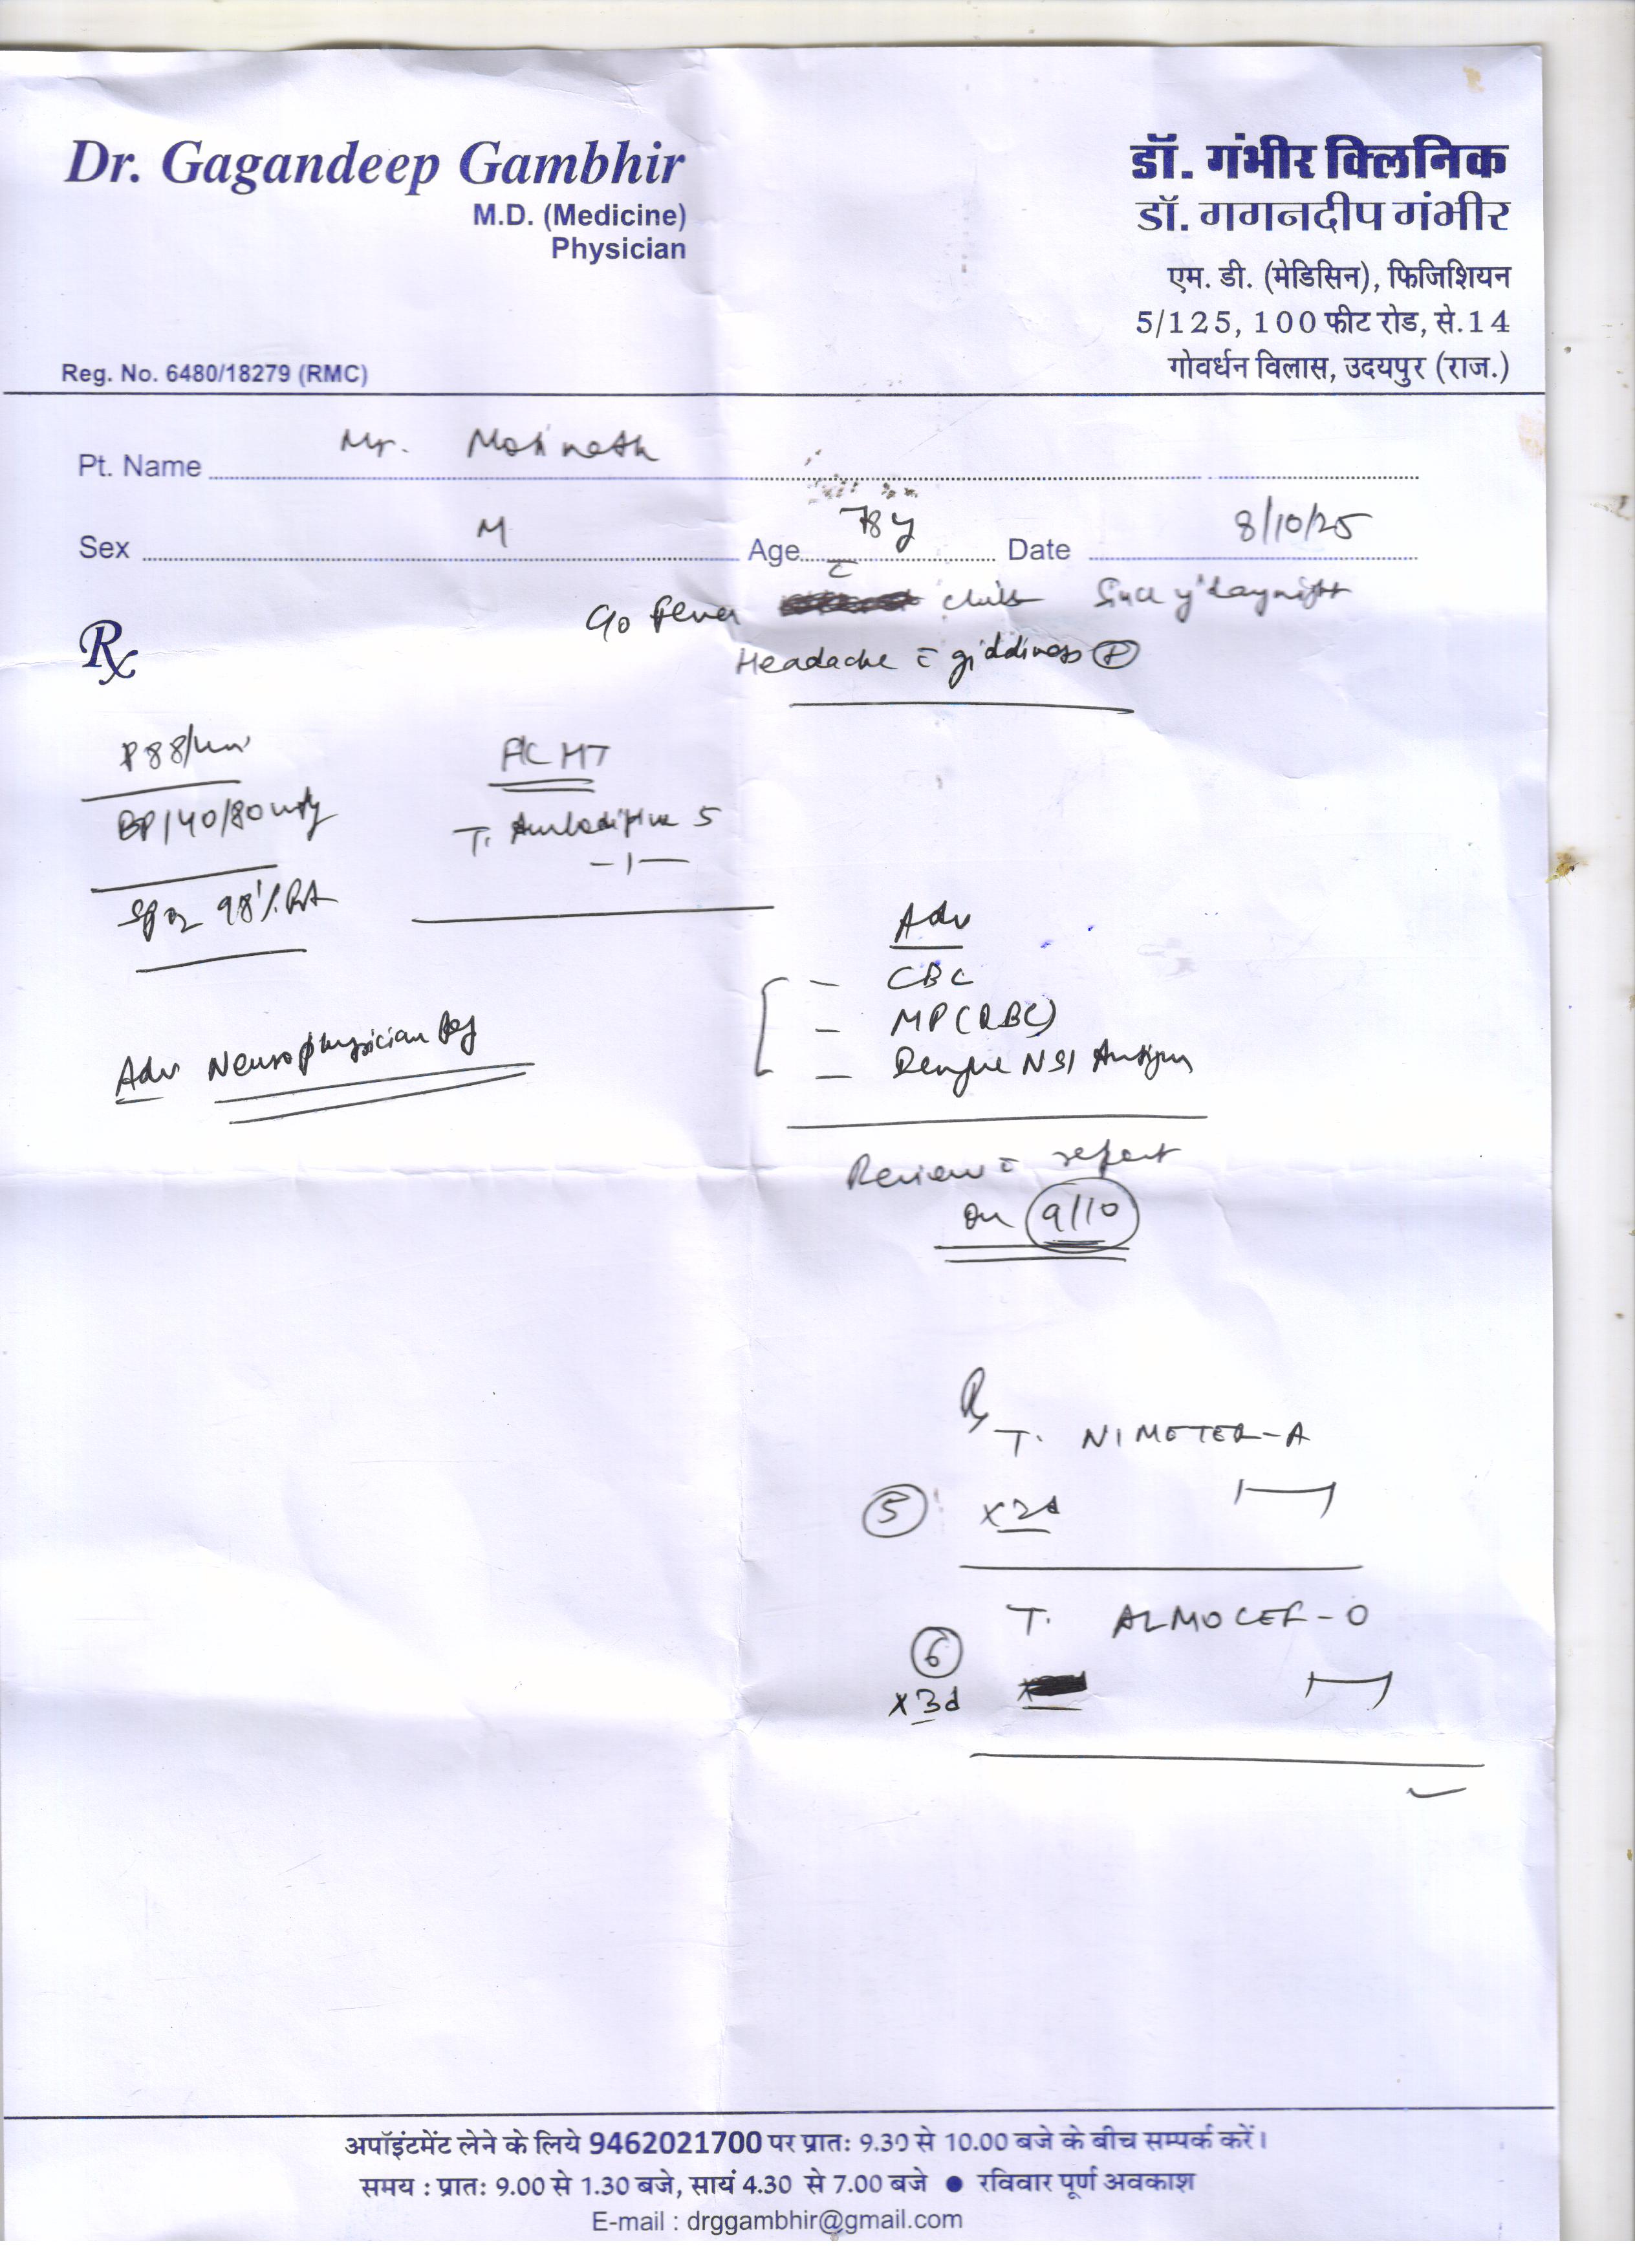 Dr. Gagandeep Gambhir
M.D. (Medicine)
Physician
Reg. No. 6480/18279 (RMC)
डॉ. गंभीर क्लिनिक
डॉ. गगनदीप गंभीर
एम. डी. (मेडिसिन), फिजिशियन
5/125, 100 फीट रोड, से.14
गोवर्धन विलास, उदयपुर (राज.)
Pt. Name Mr.
Sex M Age 78y Date 8/10/25
c/o fever c̄ chills since y'day night
Rx
Headache c̄ giddiness ⊕
P 88/min
BP 140/80 mmHg
SpO2 98% RA
HT
T. Amlodipine 5
– 1 –
Adv Neurophysician
Adv
– CBC
– MP (RBC)
– Dengue NS1 Antigen
Review c̄ report
on 9/10
Rx
T. NIMETER-A
5 x2d
T. ALMOCEF-O
6
x3d
अपॉइंटमेंट लेने के लिये 9462021700 पर प्रातः 9.30 से 10.00 बजे के बीच सम्पर्क करें।
समय : प्रातः 9.00 से 1.30 बजे, सायं 4.30 से 7.00 बजे ● रविवार पूर्ण अवकाश
E-mail : drggambhir@gmail.com